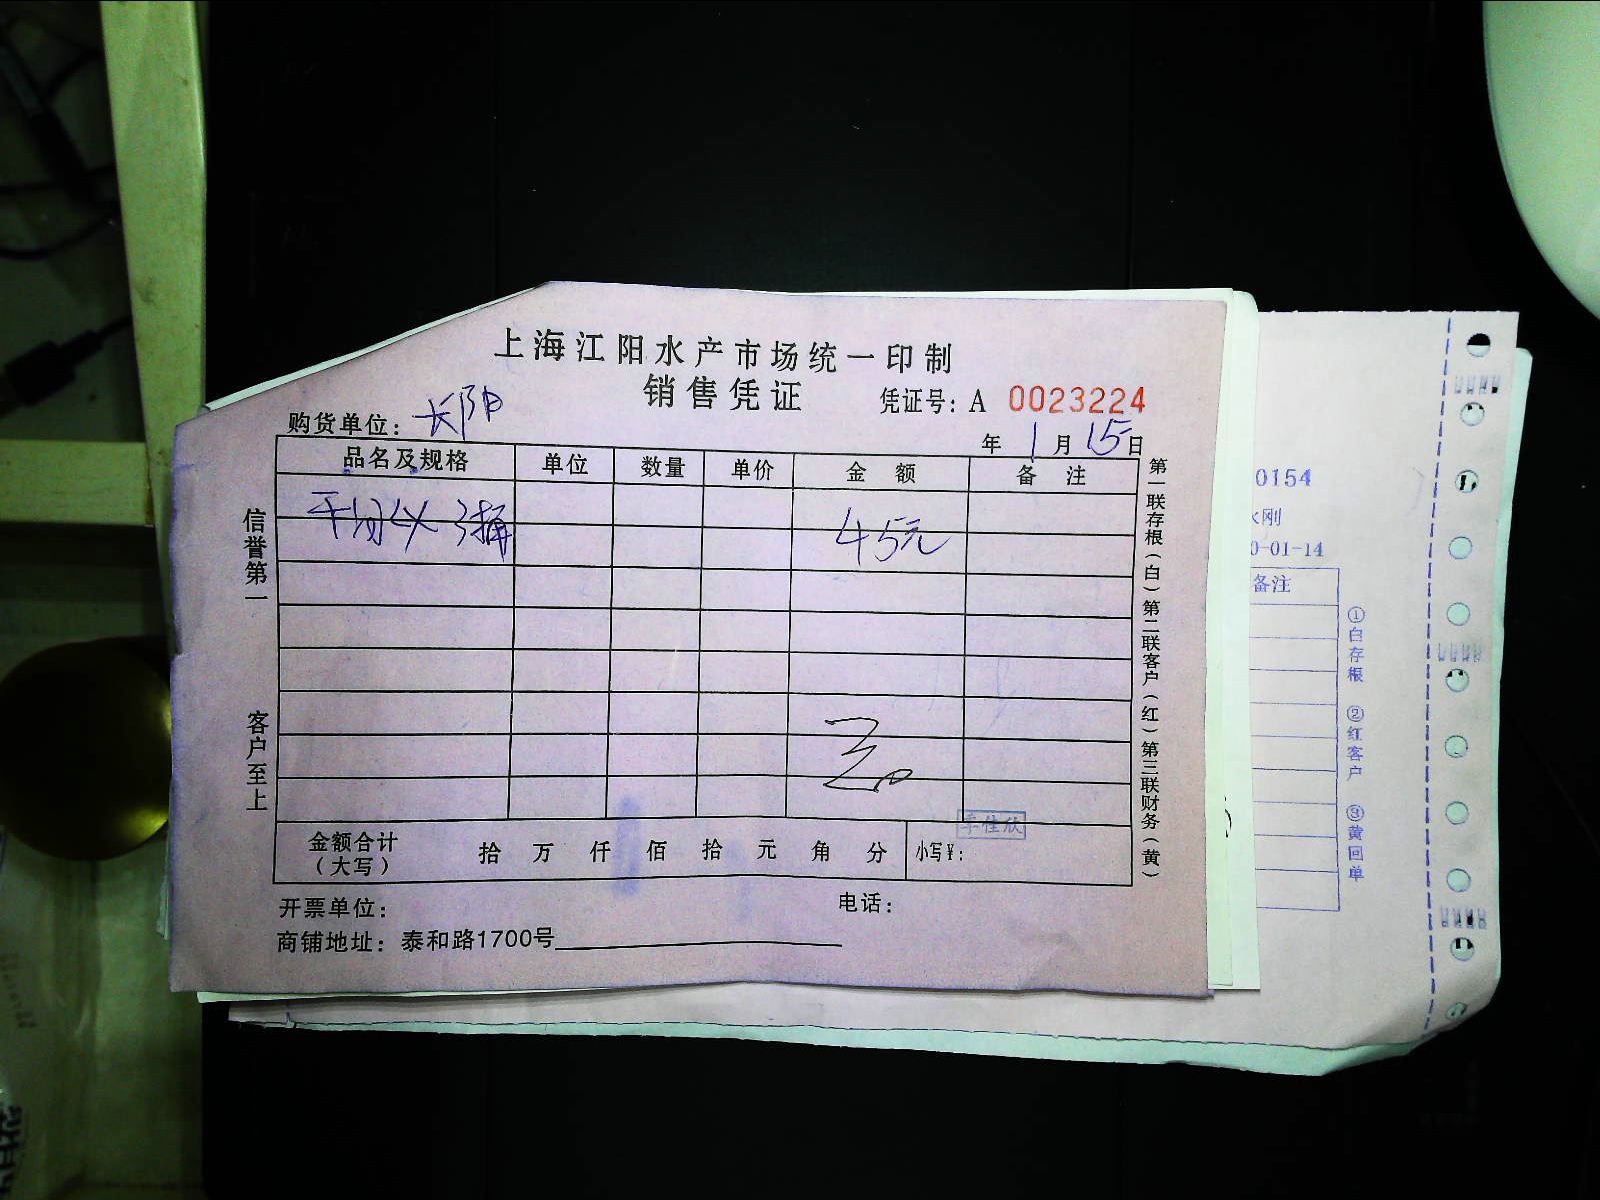 上海江阳水产市场统一印制
销售凭证
凭证号：A 0023224
购货单位：长阳
年 1 月 15 日
品名及规格 单位 数量 单价 金额 备注
3捅 45元
金额合计（大写） 拾 万 仟 佰 拾 元 角 分 小写￥：
开票单位： 电话：
商铺地址：泰和路1700号
信誉第一 客户至上
第一联存根（白）第二联客户（红）第三联财务（黄）
李佳欣
0154
刚
0-01-14
备注
①白存根 ②红客户 ③黄回单